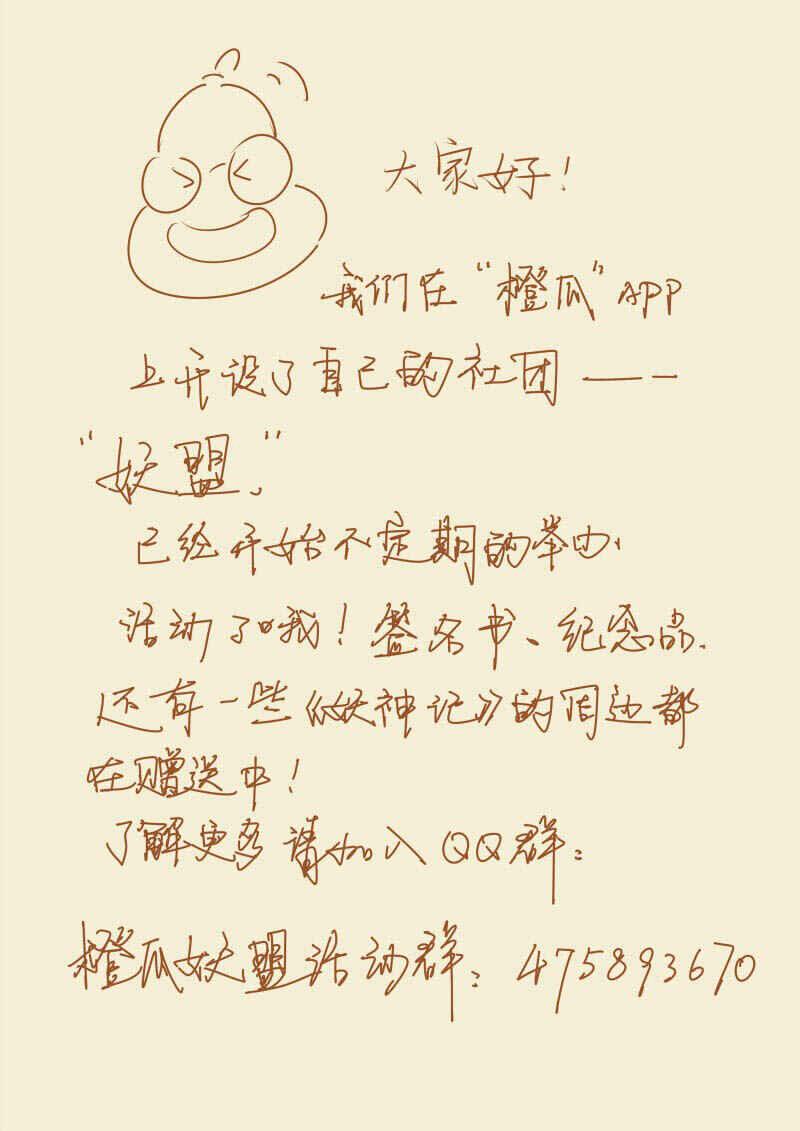 大家好！
我们在“橙瓜”APP
上开设了自己的社团——
“妖盟”
已经开始不定期的举办
活动了哦！签名书、纪念品、
还有一些《妖神记》的周边都
在赠送中！
了解更多请加入QQ群：
橙瓜妖盟活动群：475893670